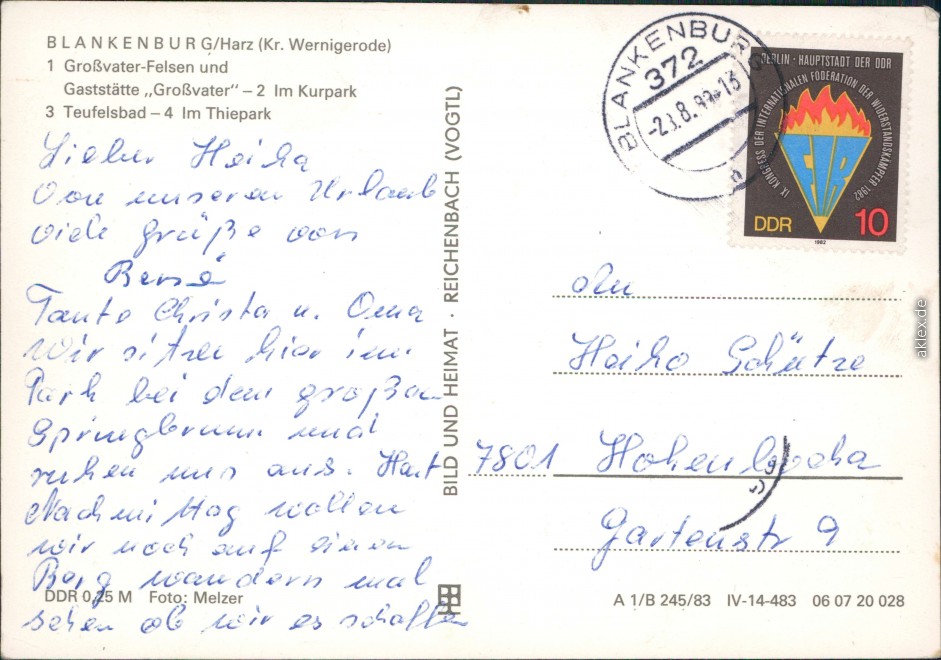 BLANKENBURG/Harz (Kr. Wernigerode)
1 Großvater-Felsen und
Gaststätte „Großvater" – 2 Im Kurpark
3 Teufelsbad – 4 Im Thiepark
Lieber Heiko
Von unseren Urlaub
viele Grüße von
Tante Christa u. Oma
Wir sitzen hier im
Park bei dem großen
Springbrunn und
ruhen uns aus.
Nachmittag wollen
wir noch auf einen
Berg wandern mal
sehen ob wir es schaffen
DDR 0,25 M Foto: Melzer
BILD UND HEIMAT · REICHENBACH (VOGTL)
BLANKENBURG
372
-23.8. -13
BERLIN · HAUPTSTADT DER DDR
IX. KONGRESS DER INTERNATIONALEN FÖDERATION DER WIDERSTANDSKÄMPFER 1982
FIR
DDR 10
1982
Heiko Schütze
7801 Hohenbocka
Gartenstr 9
A 1/B 245/83 IV-14-483 06 07 20 028
aklex.de